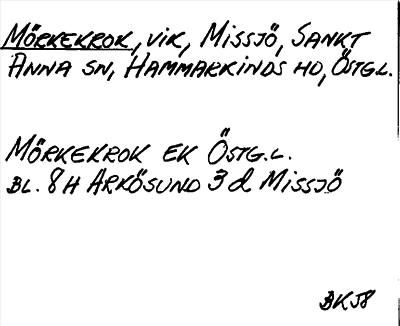 MÖRKEKROK, VIK, MISSJÖ, SANKT
ANNA SN, HAMMARKINDS HD, ÖSTGL.
MÖRKEKROK EK ÖSTG.L.
BL. 8H ARKÖSUND 3d MISSJÖ
BKJ8